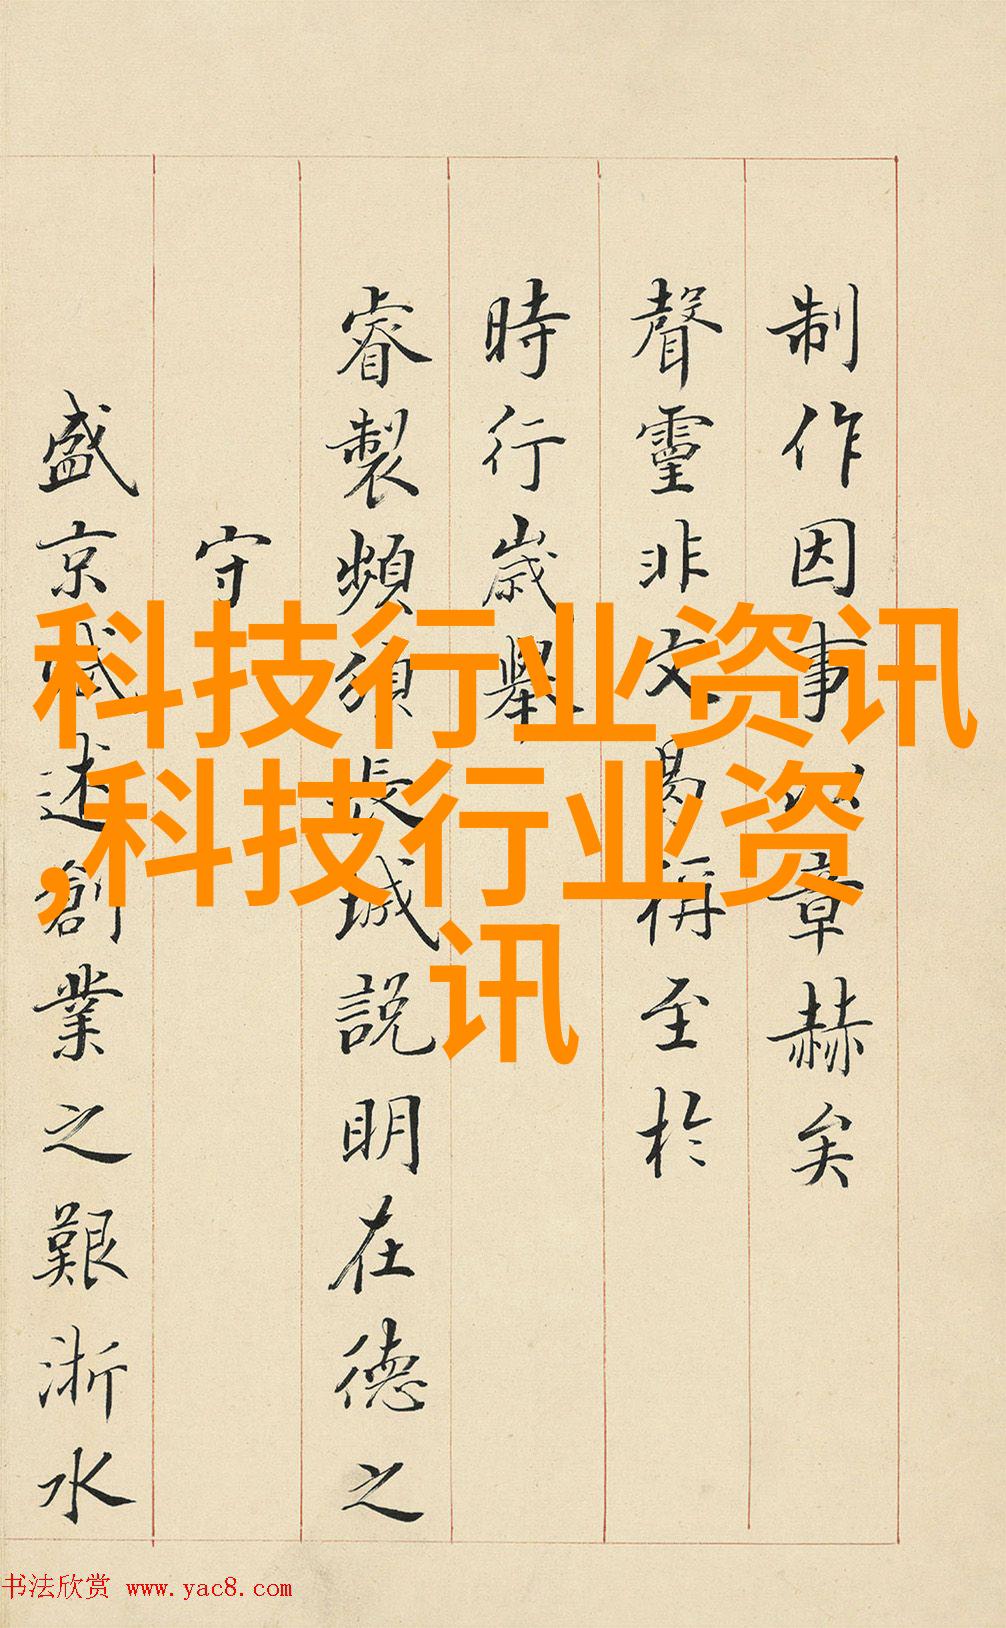 制作因事章赫矣
聲靈非文曷稱至於
時行歲舉
睿製頻長城說明在德之
守
盛京賦述創業之艱浙水
科技行业资讯
,科技行业资
讯
书法欣赏 www.yac8.com